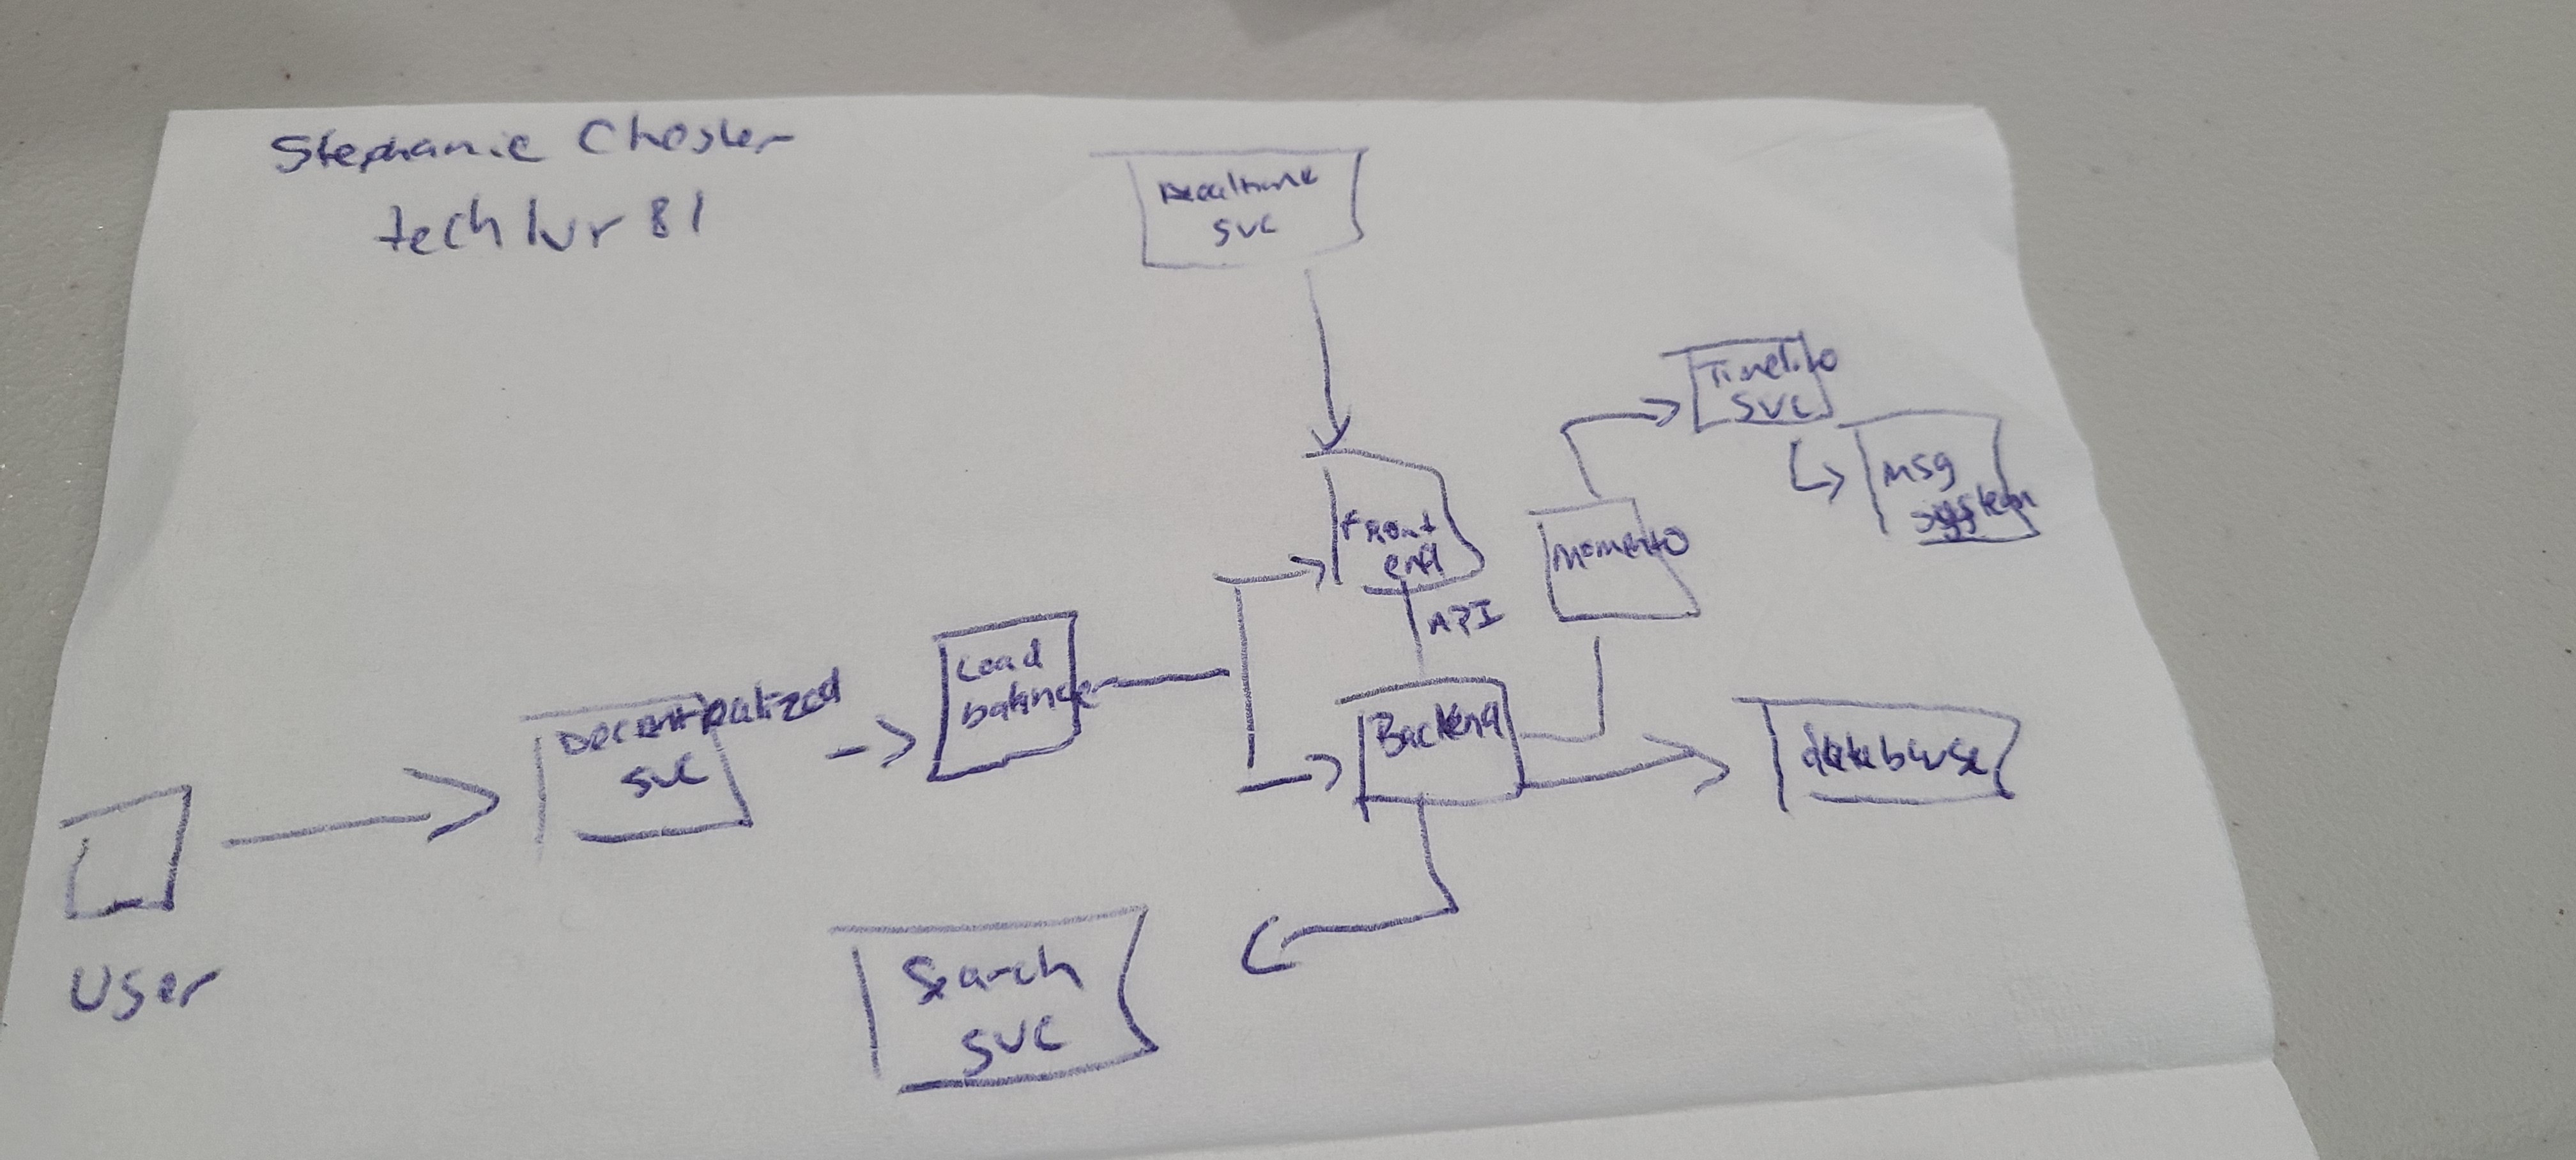 Stephanie Chesler
techlvr81
Realtime
SVC
Timeline
SVC
Msg
system
Front
end
momento
API
Load
balancer
Decentralized
SVC
Backend
database
User
Search
SVC